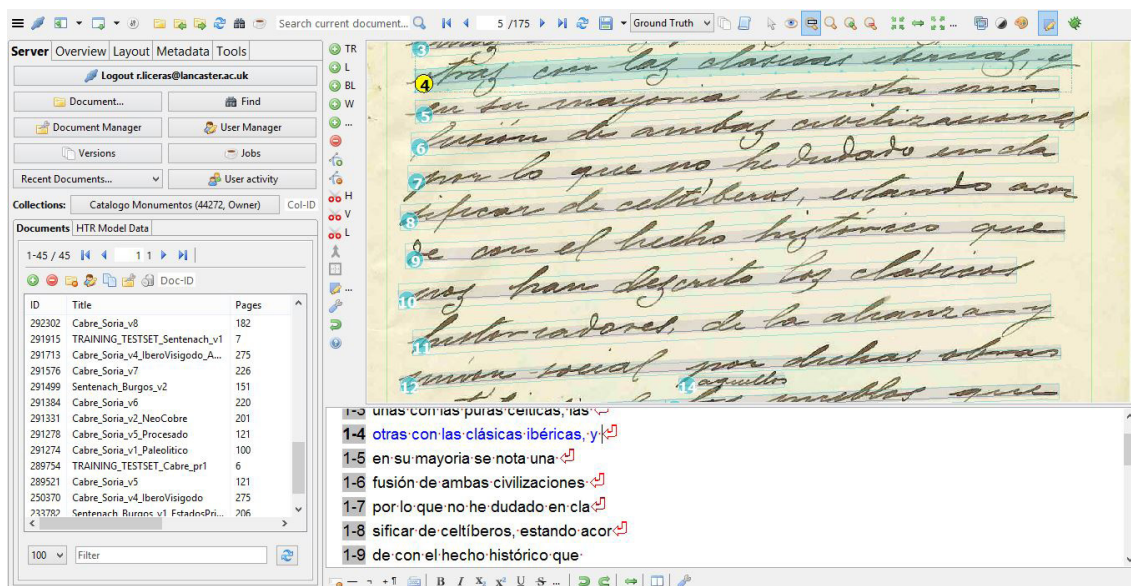 Search current document...
5 /175
Ground Truth
Server Overview Layout Metadata Tools
Logout r.liceras@lancaster.ac.uk
Document... Find
Document Manager User Manager
Versions Jobs
Recent Documents... User activity
Collections: Catalogo Monumentos (44272, Owner) Col-ID
Documents HTR Model Data
1-45 / 45 1 1
Doc-ID
ID Title Pages
292302 Cabre_Soria_v8 182
291915 TRAINING_TESTSET_Sentenach_v1 7
291713 Cabre_Soria_v4_IberoVisigodo_A... 275
291576 Cabre_Soria_v7 226
291499 Sentenach_Burgos_v2 151
291384 Cabre_Soria_v6 220
291331 Cabre_Soria_v2_NeoCobre 201
291278 Cabre_Soria_v5_Procesado 121
291274 Cabre_Soria_v1_Paleolitico 100
289754 TRAINING_TESTSET_Cabre_pr1 6
289521 Cabre_Soria_v5 121
250370 Cabre_Soria_v4_IberoVisigodo 275
233782 Sentenach_Burgos_v1_EstadosPri... 206
100 Filter
TR
L
BL
W
...
H
V
L
...
3
4 otras con las clásicas ibéricas, y
5 en su mayoria se nota una
6 fusión de ambas civilizaciones
7 por lo que no he dudado en cla
8 sificar de celtíberos, estando acor
9 de con el hecho histórico que
10 nos han descrito los clásicos
11 historiadores, de la alianza y
12 unión social por dichas obras
14 aquellos
pueblos que
1-3 unas con las puras célticas, las
1-4 otras con las clásicas ibéricas, y
1-5 en su mayoria se nota una
1-6 fusión de ambas civilizaciones
1-7 por lo que no he dudado en cla
1-8 sificar de celtíberos, estando acor
1-9 de con el hecho histórico que
B I X₁ X² U S ...